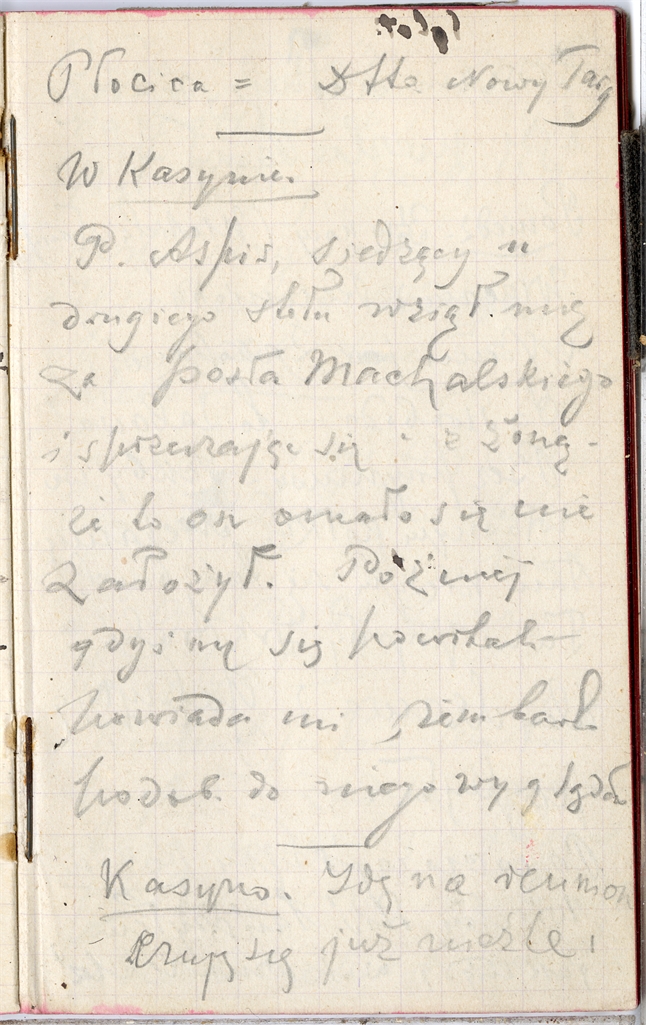 Płocica = Dtto Nowy Targ
W Kasynie.
P. Aspis, siedzący u
drugiego stołu wziął mię
za posła Machalskiego
i sprzeczając się z żoną -
że to on omało się nie
założył. Poźniej
gdyśmy się powitali
powiada mi, żem bard.
podob. do niego wygląda
Kasyno. Idę na reunion
- czuję się już nieźle.